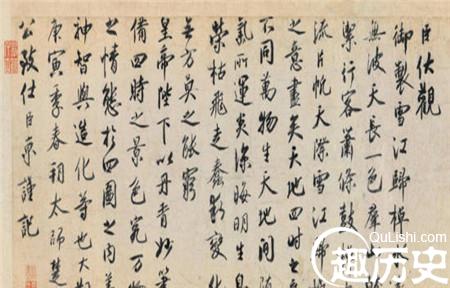 臣伏觀
御製雪江歸棹
無波天長一色群山
潔行客蕭條鼓棹
流片帆天際雪江歸
之意盡矣天地四時之
不同萬物生天地間隨
氣所運炎涼晦明生息
榮枯飛走蠢動變化
無方莫之能窮
皇帝陛下以丹青妙筆
備四時之景色究万物
之情態於四圖之内蓋
神智與造化等也大觀
庚寅季春朔太師楚
公致仕臣京謹記
QuLiShi.com
趣历史